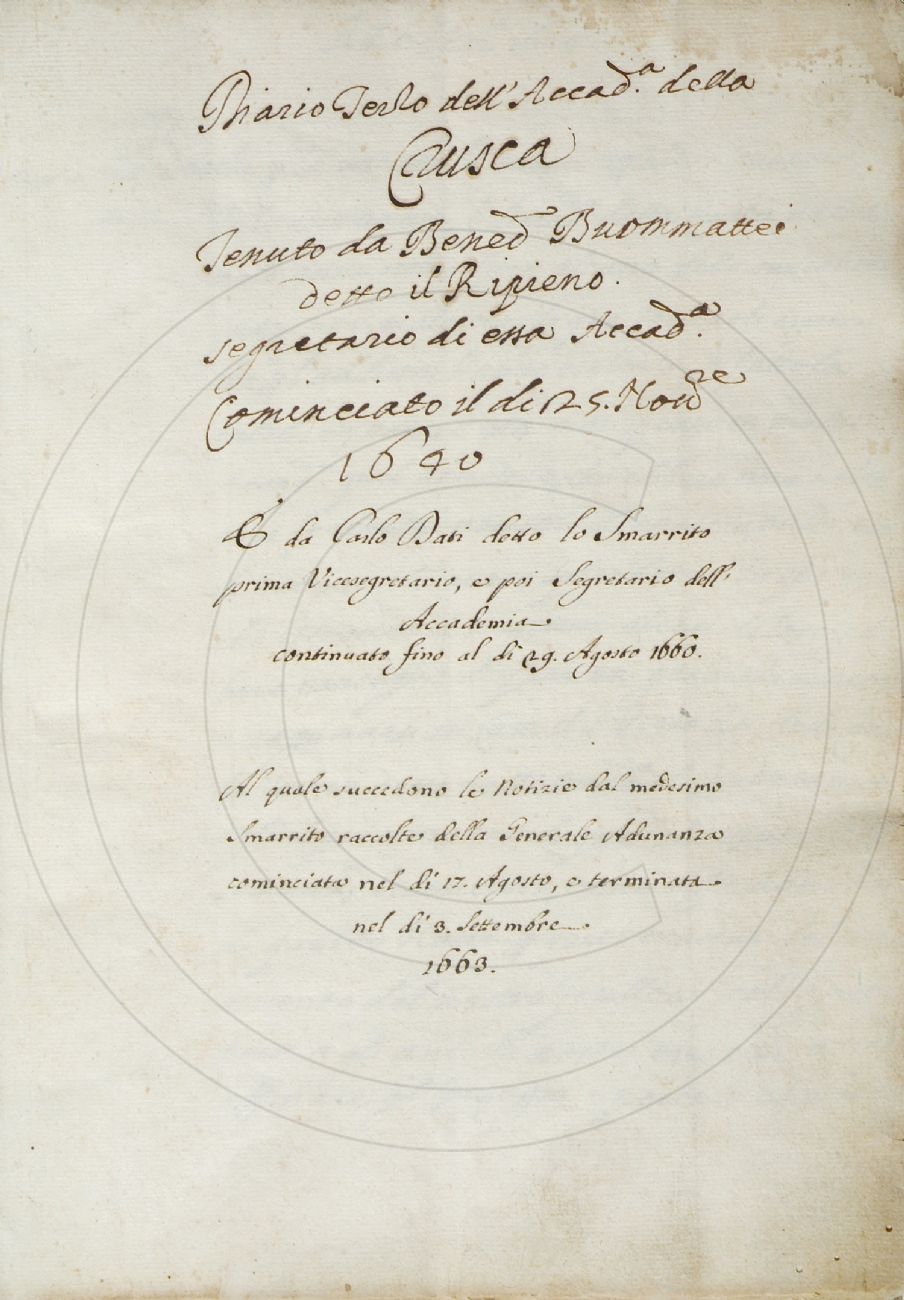 Diario Terzo dell'Accad.ª della
Crusca
Tenuto da Bened.º Buommattei
detto il Ripieno.
segretario di essa Accad.ª
Cominciato il di 25. Nov.re
1640
E da Carlo Dati detto lo Smarrito
prima Vicesegretario, e poi Segretario dell'
Accademia
continuato fino al dì 29. Agosto 1660.
Al quale succedono le Notizie dal medesimo
Smarrito raccolte della Generale Adunanza
cominciata nel dì 17. Agosto, e terminata
nel dì 3. Settembre
1663.